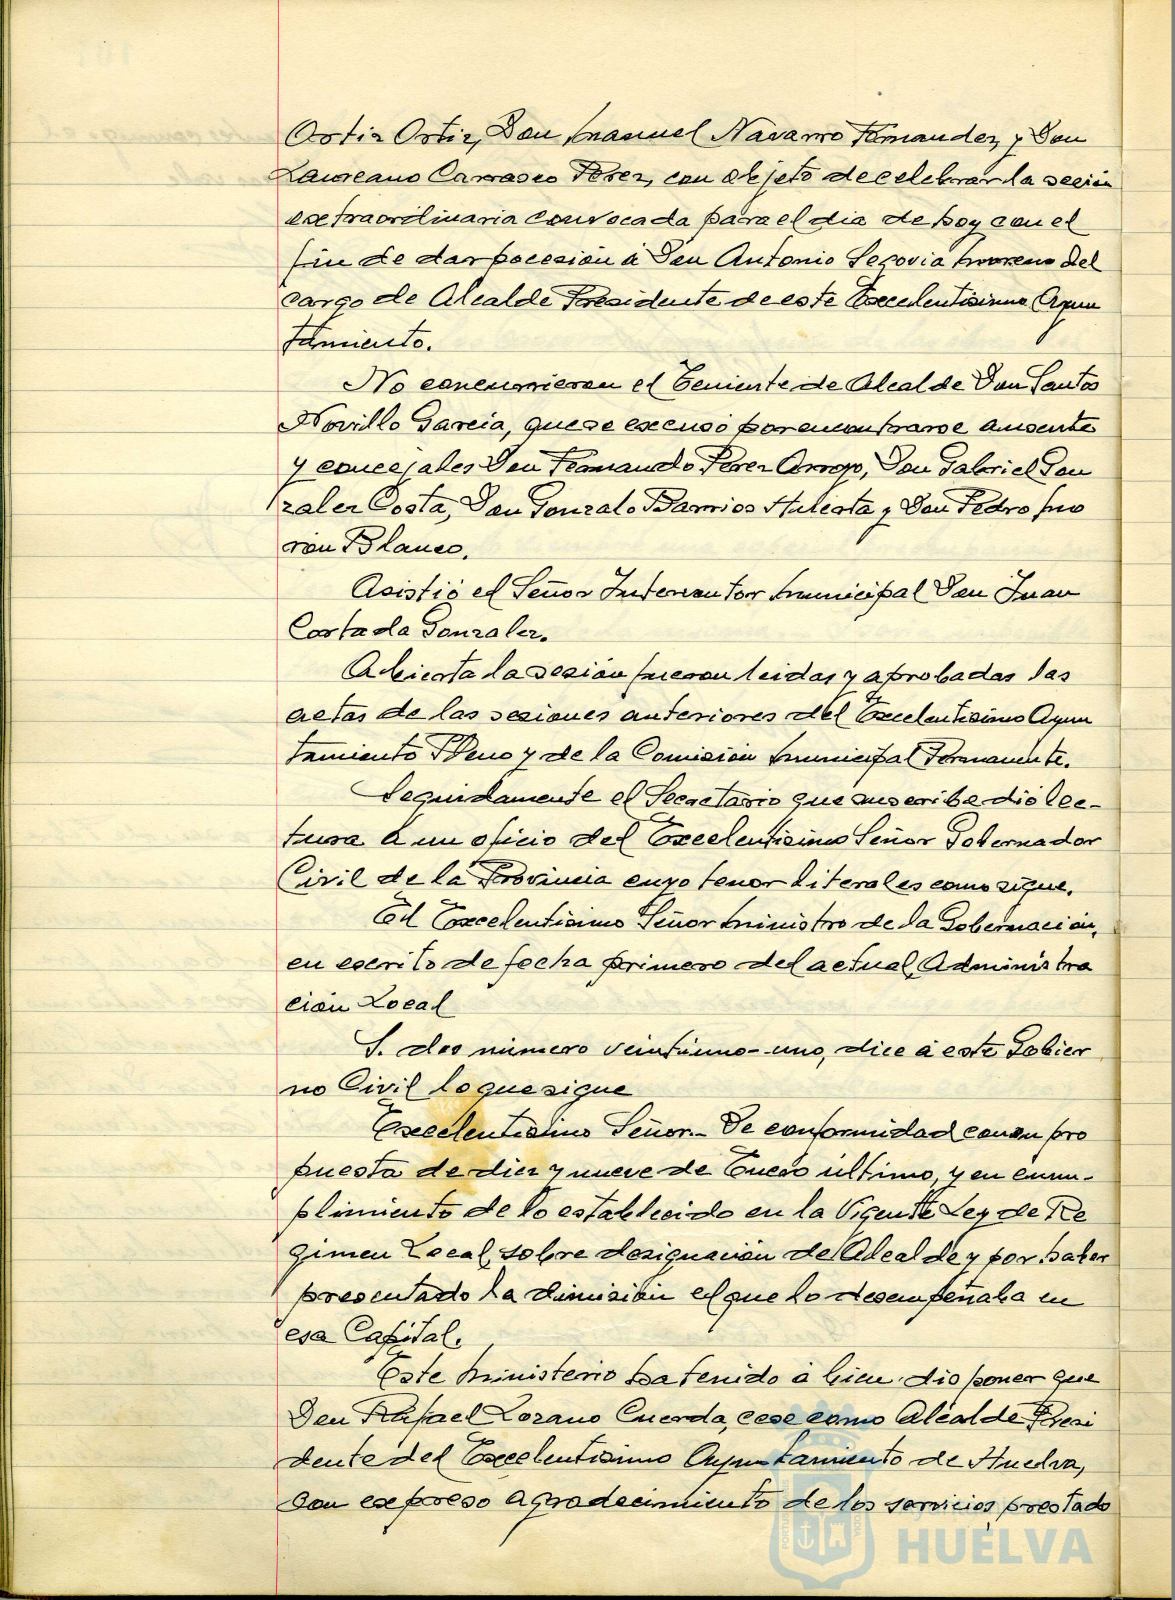 Ortiz Ortiz, Don Manuel Navarro Fernandez, y Don
Laureano Carrasco Perez, con objeto de celebrar la seción
extraordinaria convocada para el dia de hoy con el
fin de dar pocesión á Don Antonio Segovia Moreno del
cargo de Alcalde Presidente de este Excelentísimo Ayun
tamiento.
No concurrieron el Teniente de Alcalde Don Santos
Novillo Garcia, que se excusó por encontrarse ausente
y concejales Don Fernando Perez Arroyo, Don Gabriel Gon
zalez Costa, Don Gonzalo Barrios Huesta y Don Pedro Mo
ron Blanco.
Asistió el Señor Interventor Municipal Don Juan
Cortada Gonzalez.
Abierta la sesión fueron leidas y aprobadas las
actas de las sesiones anteriores del Excelentísimo Ayun
tamiento Pleno y de la Comisión Municipal Permanente.
Seguidamente el Secretario que suscribe dió lec-
tura á un oficio del Excelentísimo Señor Gobernador
Civil de la Provincia cuyo tenor literal es como sigue.
El Excelentísimo Señor Ministro de la Gobernación,
en escrito de fecha primero del actual, Administra
ción Local
S. dos número veintiuno-uno, dice á este Gobier
no Civil lo que sigue
Excelentísimo Señor.- De conformidad con su pro
puesta de diez y nueve de Enero último, y en cum-
plimiento de lo establecido en la Vigente Ley de Re
gimen Local, sobre designación de Alcalde y por haber
presentado la dimisión el que lo desempeñaba en
esa Capital.
Este Ministerio ha tenido á bien disponer que
Don Rafael Lozano Cuerda, cese como Alcalde Presi
dente del Excelentísimo Ayuntamiento de Huelva,
con expreso agradecimiento de los servicios prestado
HUELVA